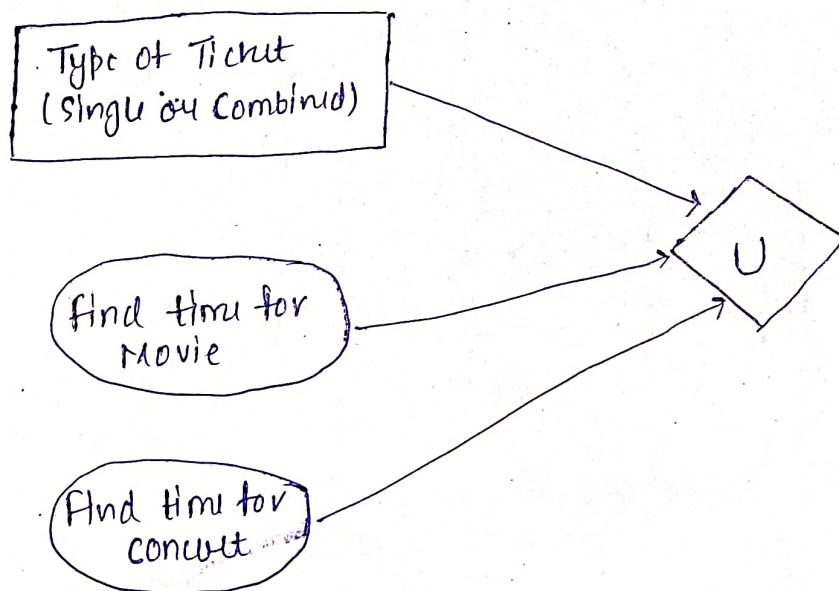 Type of Ticket
(Single or Combined)
Find time for
Movie
Find time for
concert
U